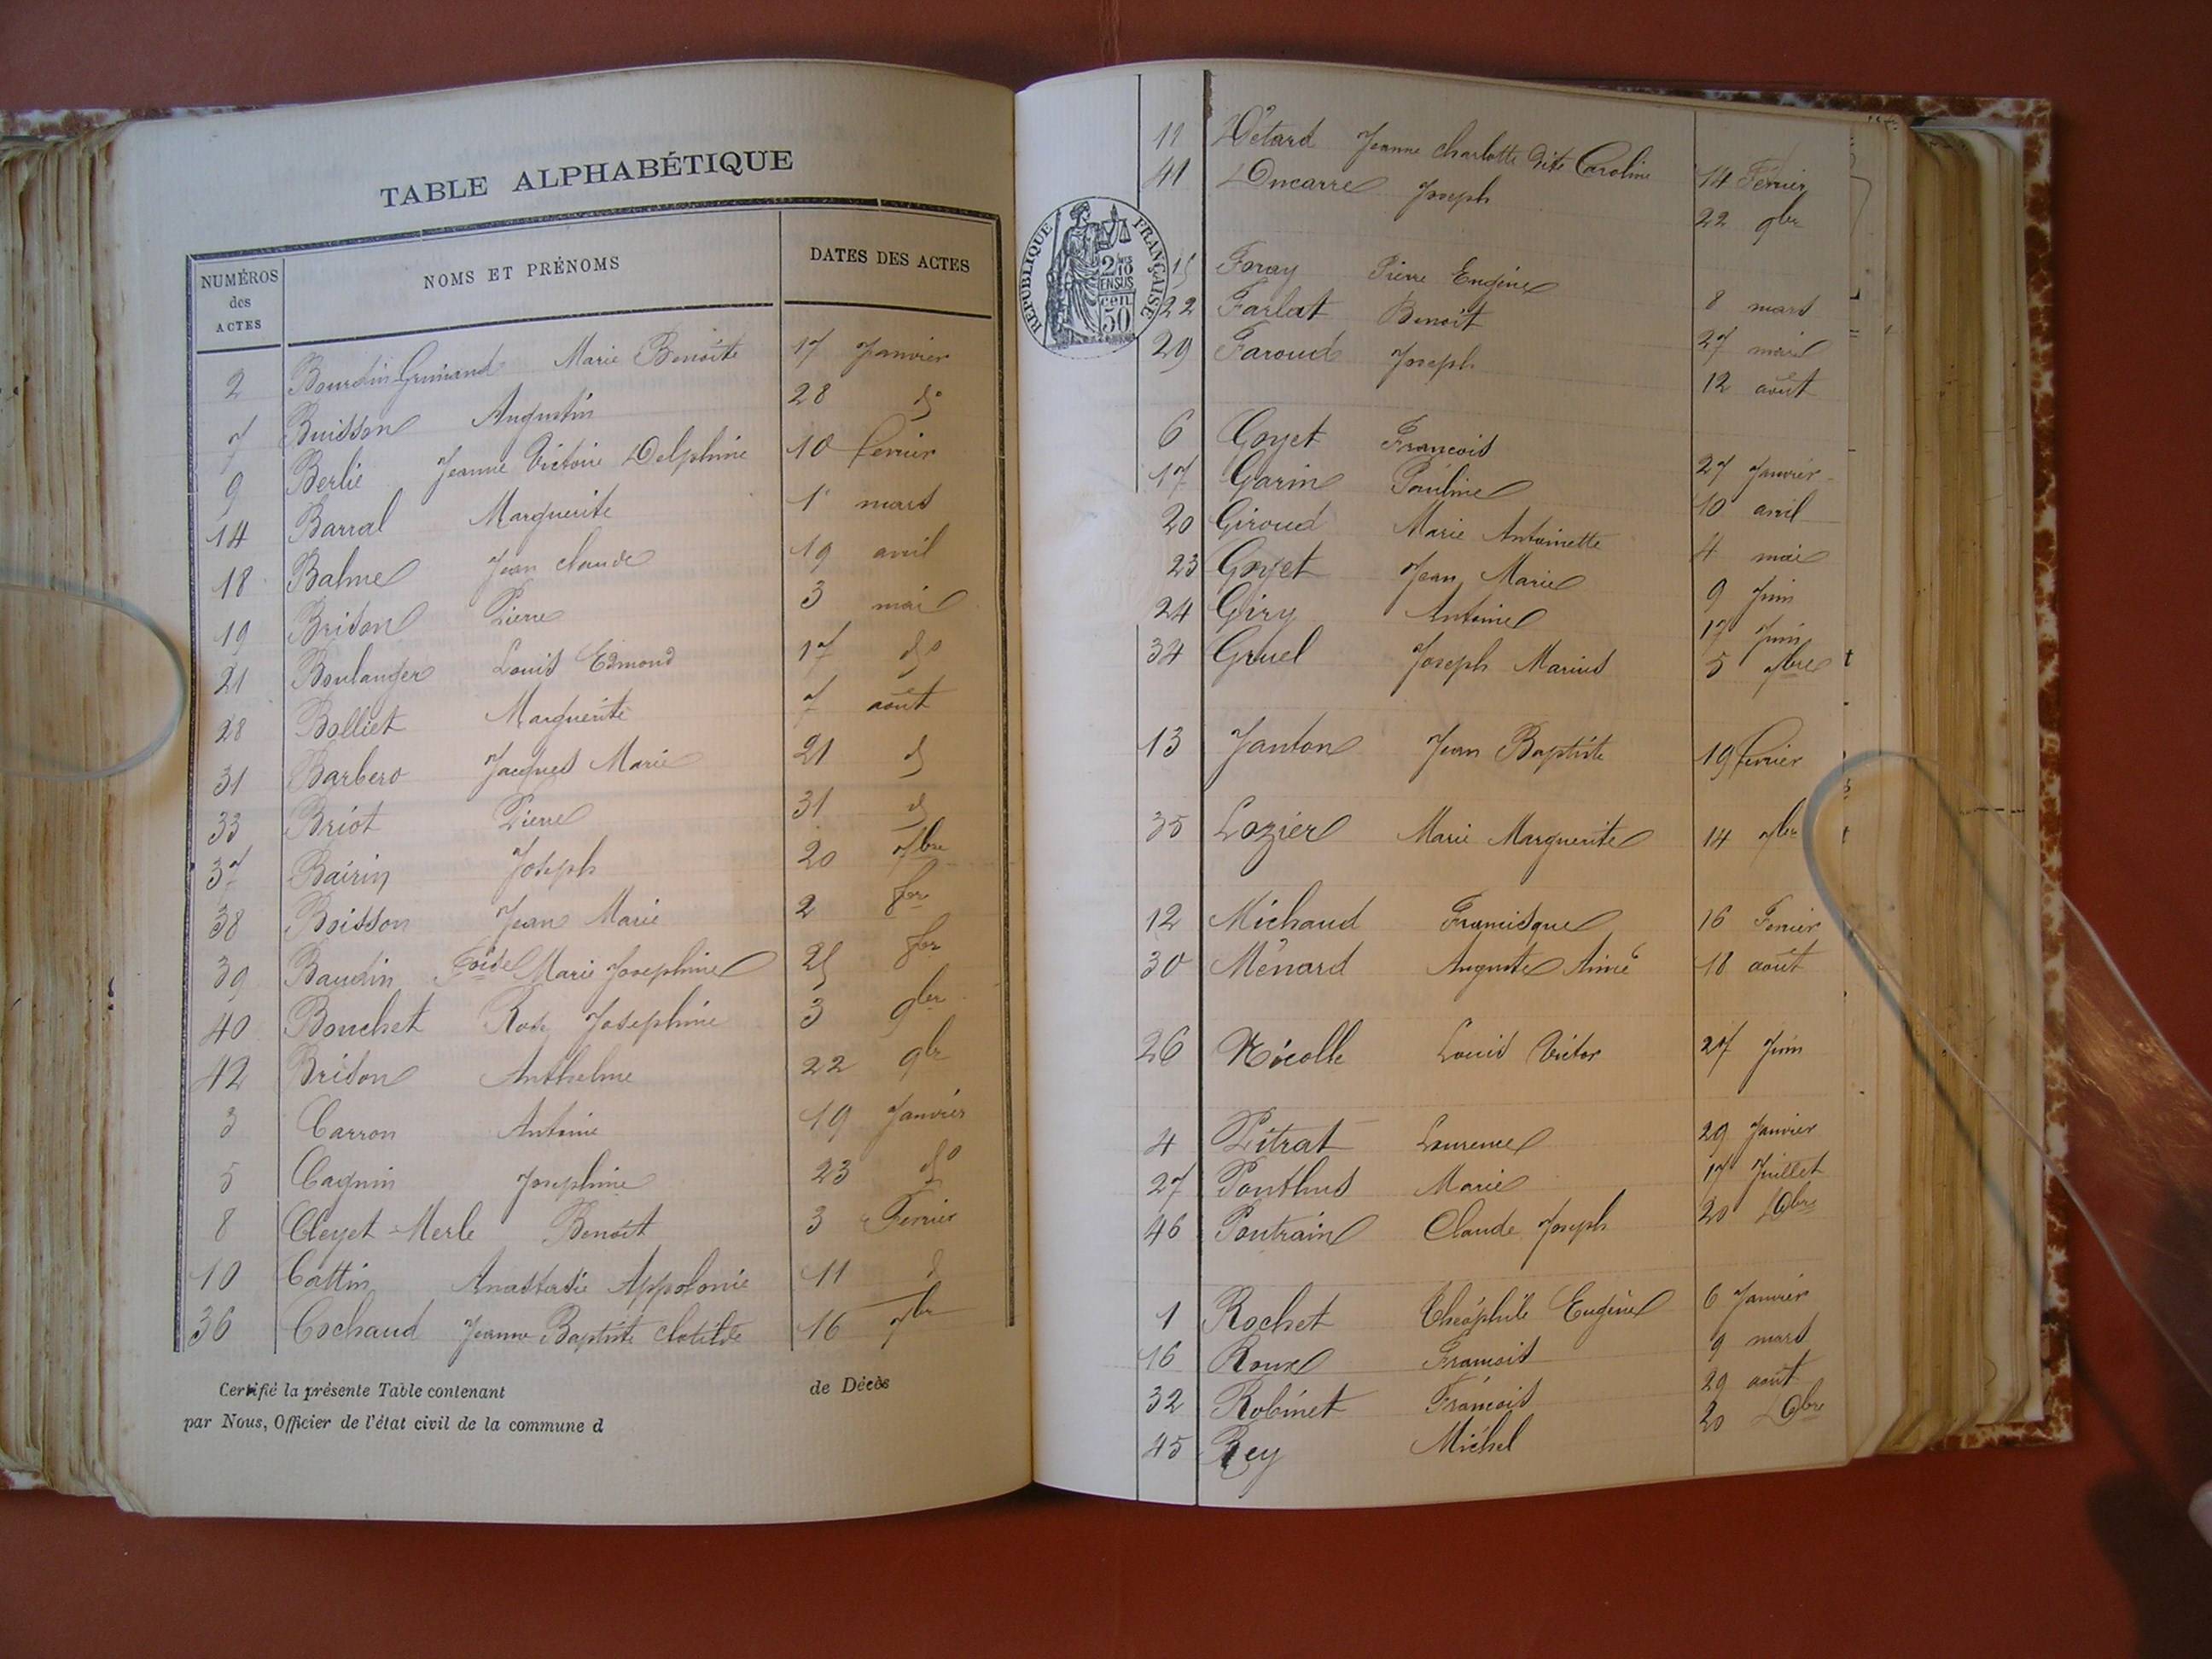 TABLE ALPHABÉTIQUE
NUMÉROS des ACTES NOMS ET PRÉNOMS DATES DES ACTES
2 Bourdin Marie Benoîte 17 Janvier
7 Buisson Augustin 28 do
9 Berlie Jeanne Victoire Delphine 10 fevrier
14 Barral Marguerite 1r mars
18 Balme Jean Claude 19 avril
19 Brison Pierre 3 mai
21 Boulanger Louis Edmond 17 do
28 Bolliet Marguerite 7 août
31 Barbero Jacques Marie 21 d
33 Briot Pierre 31 d
37 Bairin Joseph 20 7bre
38 Boisson Jean Marie 2 8br
39 Baudin Marie Josephine 25 8br
40 Bouchet Rose Josephine 3 9br
42 Brison Anthelme 22 9br
3 Carron Antoine 19 Janvier
5 Cagnin Josephine 23 do
8 Cleyet-Merle Benoît 3 Fevrier
10 Cattin Anastasie Appolonie 11 d
36 Cochaud Jeanne Baptiste Clotilde 16 7br
Certifié la présente Table contenant de Décès
par Nous, Officier de l'état civil de la commune d
11 Détard Jeanne Charlotte dite Caroline 14 Fevrier
41 Ducarre Joseph 22 9br
RÉPUBLIQUE FRANÇAISE
2/10 EN SUS
50 cen
15 Foray Pierre Eugène 8 mars
22 Farlat Benoît 27 mai
29 Faroud Joseph 12 août
6 Goyet François 27 Janvier
17 Garin Pauline 10 avril
20 Giroud Marie Antoinette 4 mai
23 Goyet Jean Marie 9 Juin
24 Giry Antoine 17 Juin
34 Gruel Joseph Marius 5 7bre
13 Janton Jean Baptiste 19 fevrier
35 Lozier Marie Marguerite 14 7br
12 Michaud Francisque 16 Fevrier
30 Ménard Auguste Aimé 18 août
26 Nicolle Louis Victor 27 Juin
4 Pitrat Laurence 29 Janvier
27 Ponthus Marie 17 Juillet
46 Poutrain Claude Joseph 20 Xbre
1 Rochet Théophile Eugène 6 Janvier
16 Roux François 9 mars
32 Robinet François 29 août
45 Rey Michel 20 Xbre